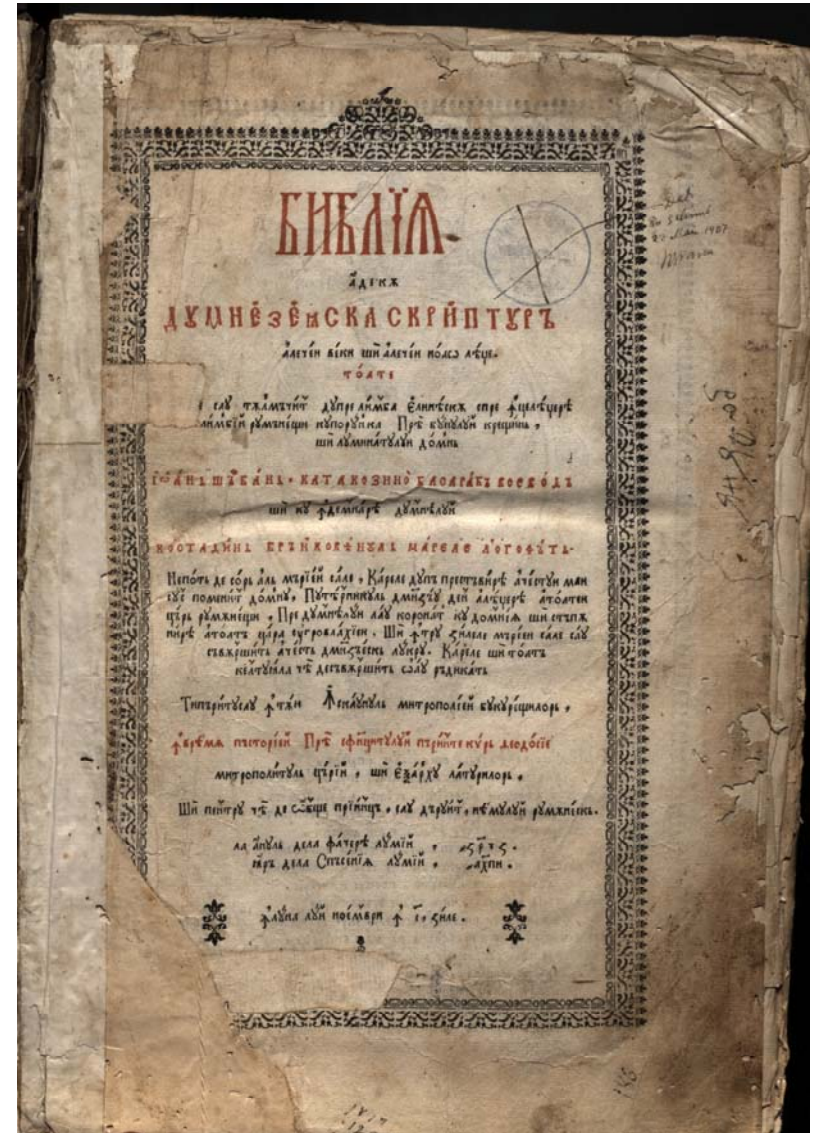 БИБЛЇѦ
а҆декѫ
ДꙊМНЕЗЕꙖСКА СКРИПТꙊРЪ
але́чей ве́ки ши́ але́чей но́аѡ лѣ́це.
то́ате
сау тѫлмъчи́т дупре ли́мба Елинѣ́скѫ спре ꙟ҆целѣ́џерѣ
ли́мбїй румънещи ку порꙋ́нка Прѣ бу́нулуй крещи́нь,
ши́ луминатулуй до́мнь
ІѠАНЬ ШЪРБАНЬ КАТАКОЗИНО БАСАРАБЪ ВОЕВОДЪ
ши́ ку ꙟ҆демнарѣ думнѣлуй
КОСТАДИНЬ БРЪНКОВѢНУЛЬ МАРЕЛЕ ЛОГОФЪТЬ
Непо́ть де со́рь аль мърїей сале, Ка́реле дупъ престъви́рѣ ачестуй май
сус помени́т до́мну, Путѣ́рникуль дмнзѣу дей алѣ́џерѣ ато́атей
цѣрь румѫнещи, Пре думнѣлуй лау коронат ку домнїѧ ши стъпѫ
ни́рѣ а тоатъ цара оугровлахїей. Ши ꙟ҆тру зи́леле мърїей сале сау
съвѫршит аче́сть дмнзъескь лукру. Ка́реле ши тоатъ
келтуѧла чѣ десъвѫршить ѡау ръдикать
Типъритусау ꙟ҆тѫи ꙟ҆скаунуль митрополїей букурещилорь,
ꙟ҆врѣмѧ пъсторїей Прѣ сфинцитулуй пъринте кирь Ѳеодосїе
митрополитуль църїй, ши еѯархꙋ латурилорь,
Ши пентру чѣ де ѡбще прїинцъ, сау дъруит, нѣмулуй румѫнескь.
ла ануль дела фачерѣ лумїй, ҂зрчз.
ꙗръ дела Спъсенїѧ лумїй, ҂ахпи.
ꙟ҆луна луй ноември ꙟ҆ і зиле.
22 Mai 1907